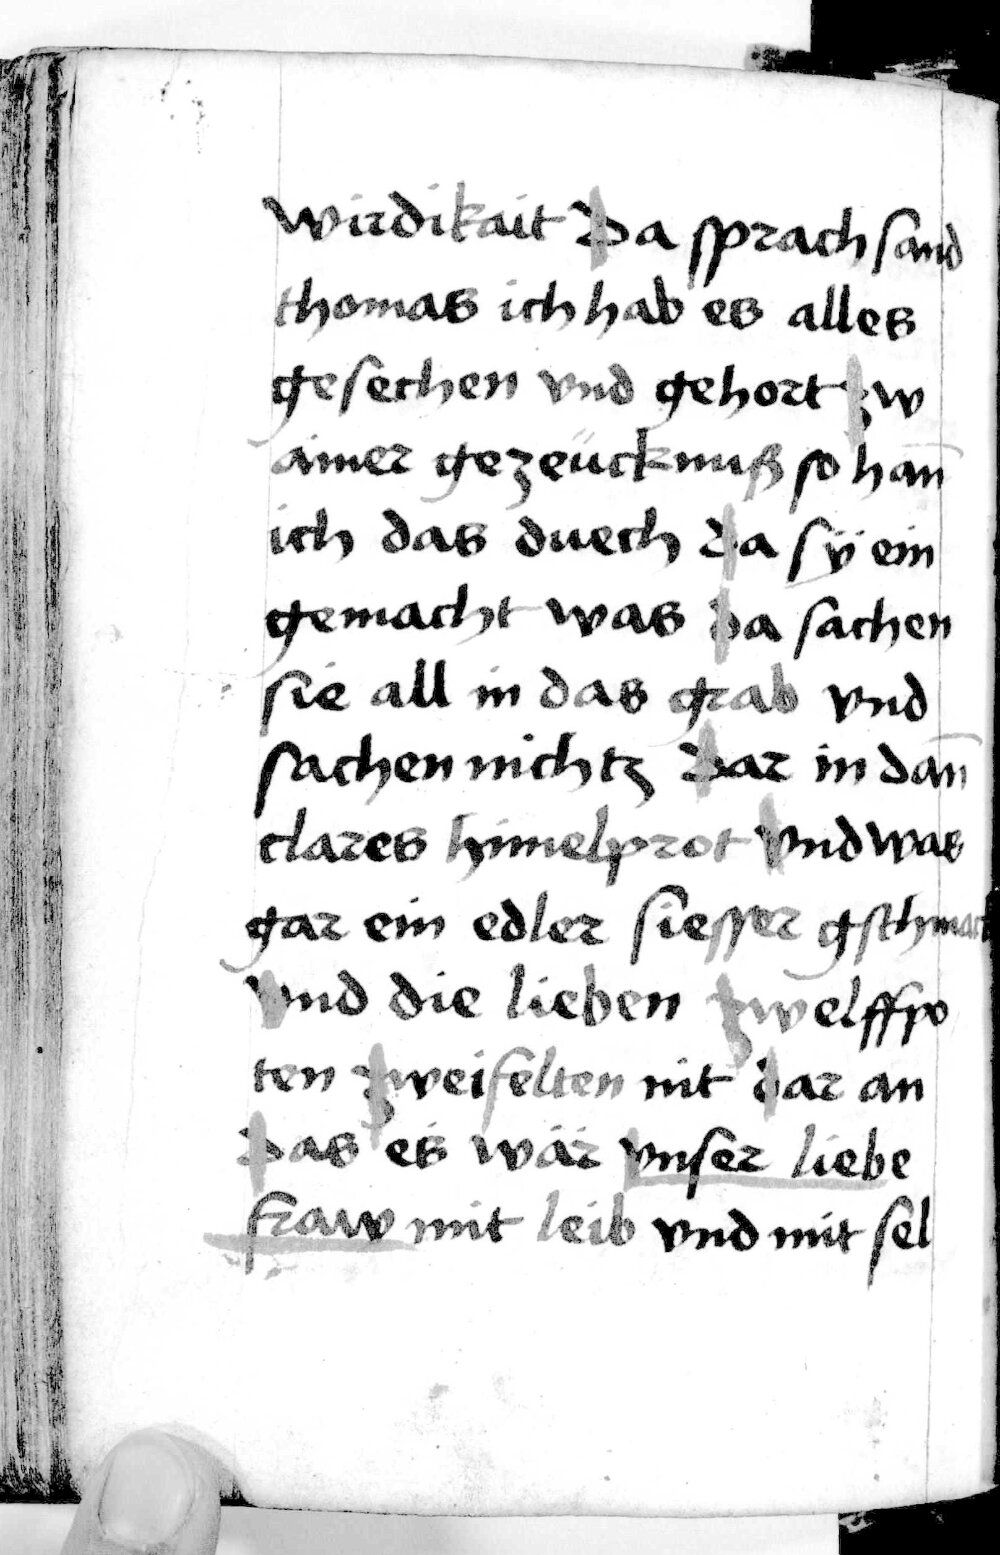 wirdikait Da sprach sand
thomas ich hab es alles
gesechen vnd gehort zw
ainer gezeücknuß so han̄
ich das duech da sÿ ein
gemacht was da sachen
sie all in das grab vnd
sachen nichtz Dar in dan̄
clares himelprot Vnd was
gar ein edler siesser gschmack
Vnd die lieben zwelffpo
ten zweifelten nit dar an
Das es wär vnser liebe
fraw mit leib vnd mit sel